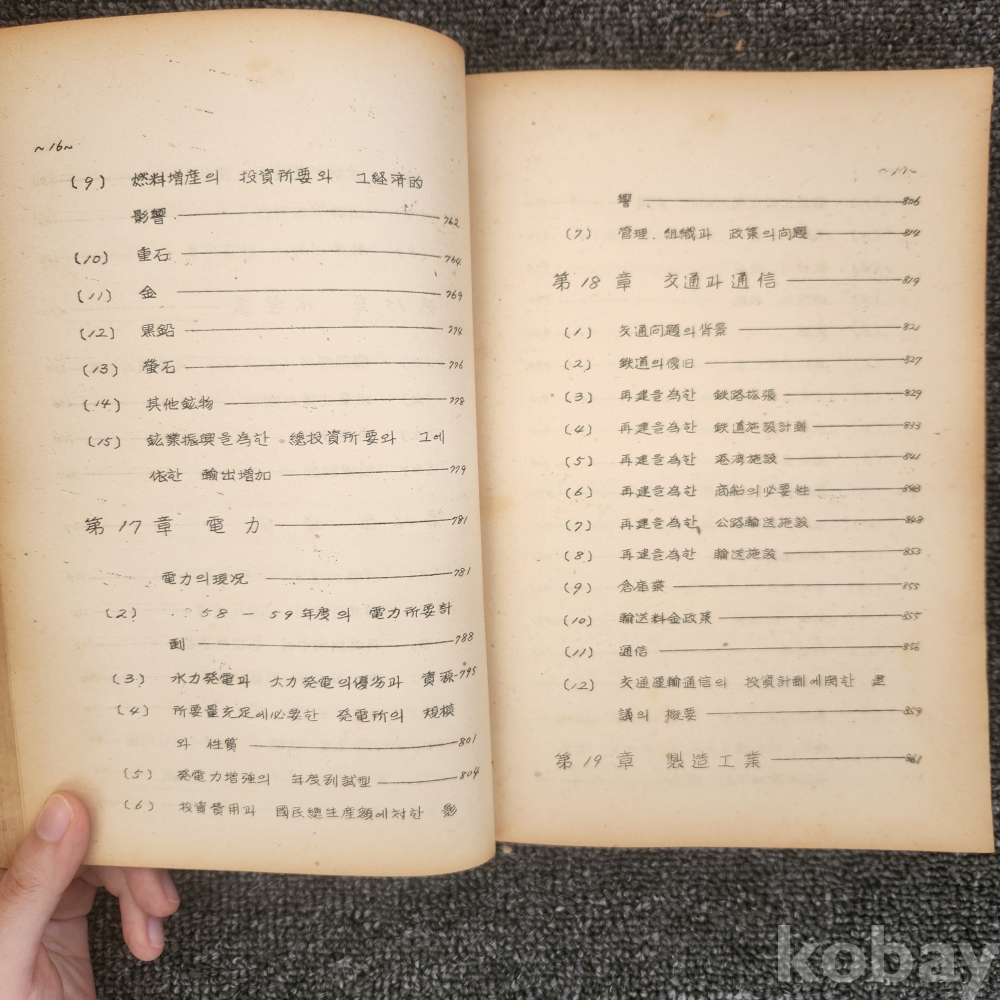 ~16~
(9) 燃料増産의 投資所要와 그経済的
影響 762
(10) 重石 764
(11) 金 769
(12) 黒鉛 774
(13) 螢石 776
(14) 其他鉱物 778
(15) 鉱業振興을為한 總投資所要와 그에
依한 輸出増加 779
第17章 電力 781
電力의現况 781
(2) 58 - 59年度의 電力所要計
劃 788
(3) 水力発電과 火力発電의優劣과 資源 795
(4) 所要量充足에必要한 発電所의 規模
와 性質 801
(5) 発電力増強의 年度別試型 804
(6) 投資費用과 國民總生産額에対한 影
~17~
響 806
(7) 管理.組織과 政策의问題 814
第18章 交通과通信 819
(1) 交通问題의背景 821
(2) 鉄道의復旧 827
(3) 再建을為한 鉄路拡張 829
(4) 再建을為한 鉄道施設計劃 833
(5) 再建을為한 港湾施設 841
(6) 再建을為한 商船의必要性 843
(7) 再建을為한 公路輸送施設 848
(8) 再建을為한 輸送施設 853
(9) 倉庫業 855
(10) 輸送料金政策 855
(11) 通信 856
(12) 交通運輸通信의 投資計劃에関한 建
議의 概要 859
第19章 製造工業 861
kobay